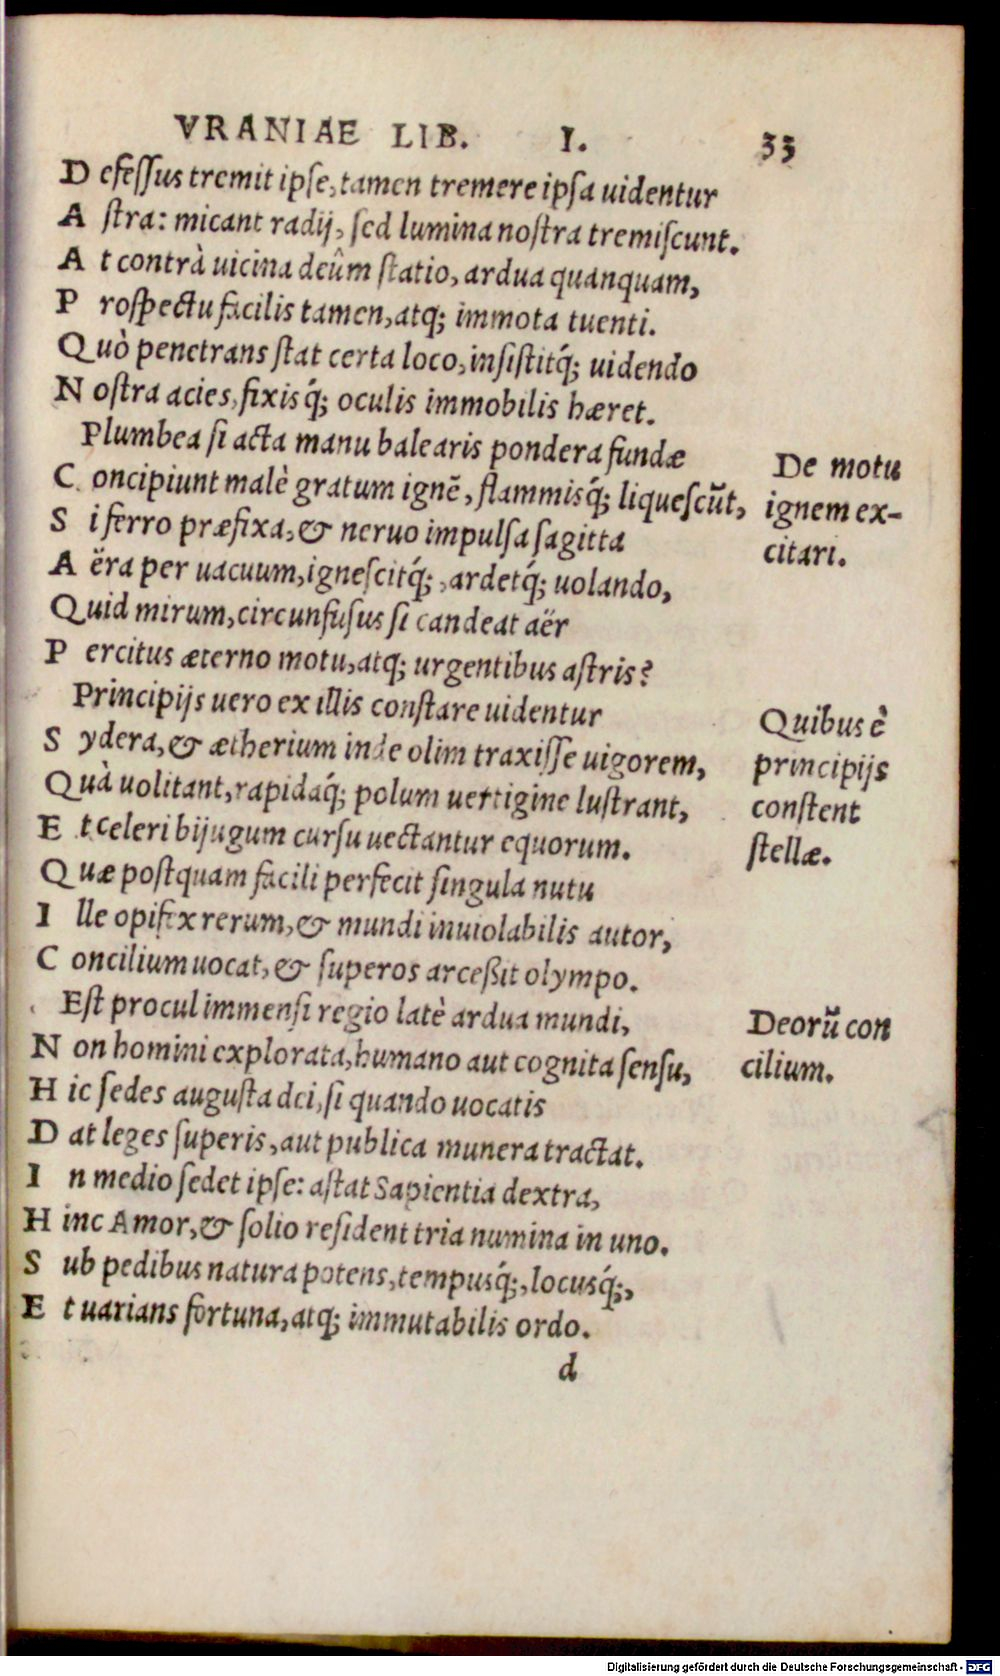 VRANIAE LIB. I. 33
Defeſſus tremit ipſe, tamen tremere ipſa uidentur
Aſtra: micant radij, ſed lumina noſtra tremiſcunt.
At contrà uicina deûm ſtatio, ardua quanquam,
Proſpectu facilis tamen, atq; immota tuenti.
Quò penetrans ſtat certa loco, inſiſtitq́; uidendo
Noſtra acies, fixisq́; oculis immobilis hæret.
Plumbea ſi acta manu balearis pondera fundæ
Concipiunt malè gratum ignē, flammisq́; liqueſcūt,
Si ferro præfixa, & neruo impulſa ſagitta
Aëra per uacuum, igneſcitq́;, ardetq́; uolando,
Quid mirum, circunfuſus ſi candeat aër
Percitus æterno motu, atq; urgentibus aſtris?
Principijs uero ex illis conſtare uidentur
Sydera, & ætherium inde olim traxiſſe uigorem,
Quà uolitant, rapidaq́; polum uertigine luſtrant,
Et celeri bijugum curſu uectantur equorum.
Quæ poſtquam facili perfecit ſingula nutu
Ille opifex rerum, & mundi inuiolabilis autor,
Concilium uocat, & ſuperos arceßit olympo.
Eſt procul immenſi regio latè ardua mundi,
Non homini explorata, humano aut cognita ſenſu,
Hic ſedes auguſta dei, ſi quando uocatis
Dat leges ſuperis, aut publica munera tractat.
In medio ſedet ipſe: aſtat Sapientia dextra,
Hinc Amor, & ſolio reſident tria numina in uno.
Sub pedibus natura potens, tempusq́;, locusq́;,
Et uarians fortuna, atq; immutabilis ordo.
d
De motu
ignem ex-
citari.
Quibus è
principijs
conſtent
ſtellæ.
Deorū con
cilium.
Digitalisierung gefördert durch die Deutsche Forschungsgemeinschaft - DFG